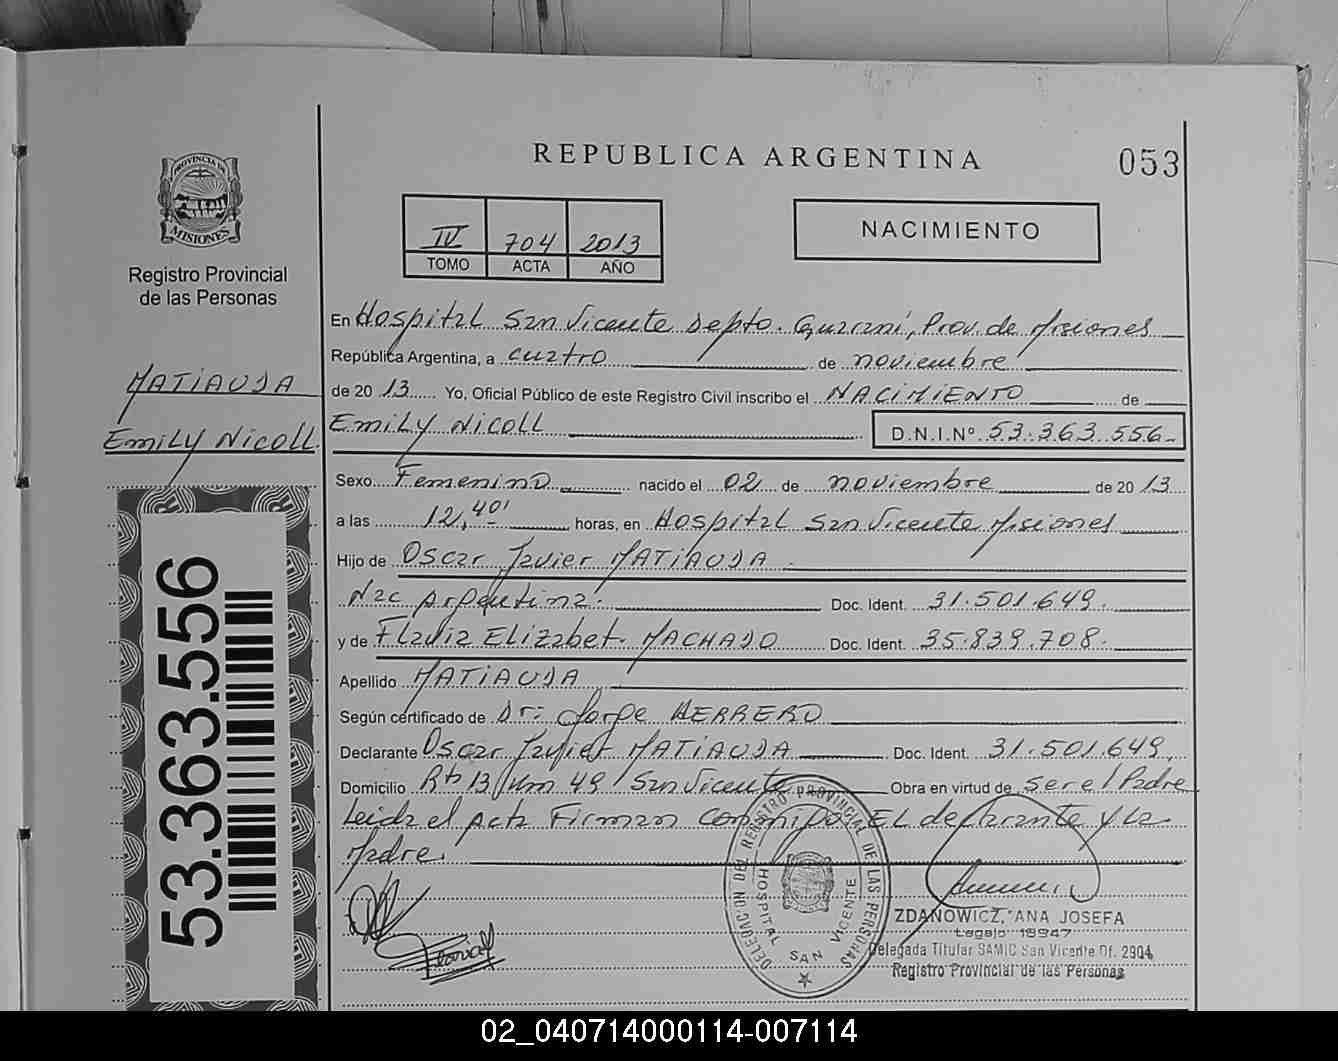 REPUBLICA ARGENTINA
053
PROVINCIA DE
MISIONES
Registro Provincial
de las Personas
IV 704 2013
TOMO ACTA AÑO
NACIMIENTO
En Hospital San Vicente Depto. Guaraní, Prov. de Misiones
República Argentina, a cuatro de noviembre
MATIAUDA
de 20 13 Yo, Oficial Público de este Registro Civil inscribo el NACIMIENTO de
Emily Nicoll
Emily Nicoll D.N.I.Nº 53.363.556
Sexo Femenino nacido el 02 de noviembre de 20 13
a las 12,40' horas, en Hospital San Vicente Misiones
Hijo de Oscar Javier MATIAUDA
Nac Argentina. Doc. Ident. 31.501.649.
y de Flavia Elizabet. MACHADO Doc. Ident. 35.839.708.
Apellido MATIAUDA
Según certificado de Dr: Jorge HERRERO
Declarante Oscar Javier MATIAUDA Doc. Ident. 31.501.649.
Domicilio Rta 13 Km 49 San Vicente Obra en virtud de ser el Padre
Leida el acta Firman conmigo EL declarante y La
Madre.
53.363.556
DELEGACION DEL REGISTRO PROVINCIAL DE LAS PERSONAS
HOSPITAL SAN VICENTE
ZDANOWICZ, ANA JOSEFA
Legajo 18947
Delegada Titular SAMIC San Vicente Of. 2904
Registro Provincial de las Personas
02_040714000114-007114